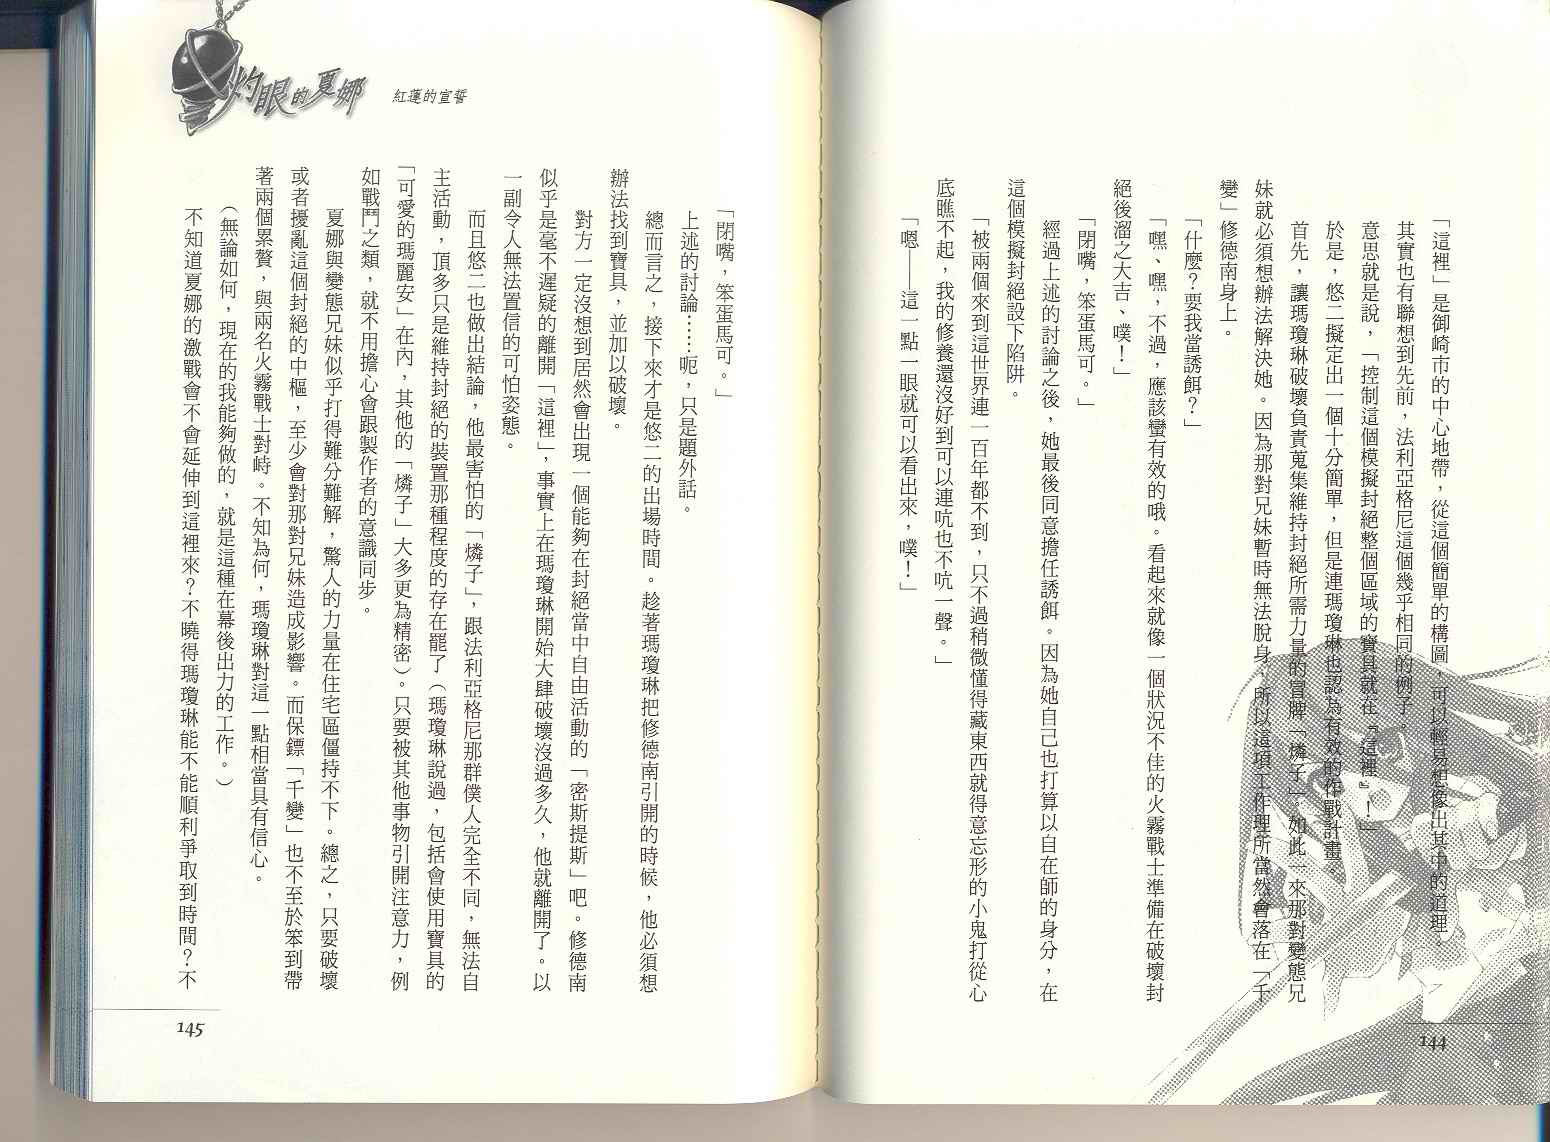 「這裡」是御崎市的中心地帶，從這個簡單的構圖，可以輕易想像出其中的道理。
其實也有聯想到先前，法利亞格尼這個幾乎相同的例子
意思就是說，「控制這個模擬封絕整個區域的寶具就在『這裡』！」
於是，悠二擬定出一個十分簡單，但是連瑪瓊琳也認為有效的作戰計畫。
首先，讓瑪瓊琳破壞負責蒐集維持封絕所需力量的冒牌「燐子」。如此一來那對變態兄
妹就必須想辦法解決她。因為那對兄妹暫時無法脫身，所以這項工作理所當然會落在「千
變」修德南身上。
「什麼？要我當誘餌？」
「嘿、嘿，不過，應該蠻有效的哦。看起來就像一個狀況不佳的火霧戰士準備在破壞封
絕後溜之大吉、噗！」
「閉嘴，笨蛋馬可。」
經過上述的討論之後，她最後同意擔任誘餌。因為她自己也打算以自在師的身分，在
這個模擬封絕設下陷阱。
「被兩個來到這世界連一百年都不到，只不過稍微懂得藏東西就得意忘形的小鬼打從心
底瞧不起，我的修養還沒好到可以連吭也不吭一聲。」
「嗯——這一點一眼就可以看出來，噗！」
144
灼眼的夏娜
紅蓮的宣誓
「閉嘴，笨蛋馬可。」
上述的討論……呃，只是題外話。
總而言之，接下來才是悠二的出場時間。趁著瑪瓊琳把修德南引開的時候，他必須想
辦法找到寶具，並加以破壞。
對方一定沒想到居然會出現一個能夠在封絕當中自由活動的「密斯提斯」吧。修德南
似乎是毫不遲疑的離開「這裡」，事實上在瑪瓊琳開始大肆破壞沒過多久，他就離開了。以
一副令人無法置信的可怕姿態。
而且悠二也做出結論，他最害怕的「燐子」，跟法利亞格尼那群僕人完全不同，無法自
主活動，頂多只是維持封絕的裝置那種程度的存在罷了（瑪瓊琳說過，包括會使用寶具的
「可愛的瑪麗安」在內，其他的「燐子」大多更為精密）。只要被其他事物引開注意力，例
如戰鬥之類，就不用擔心會跟製作者的意識同步。
夏娜與變態兄妹似乎打得難分難解，驚人的力量在住宅區僵持不下。總之，只要破壞
或者擾亂這個封絕的中樞，至少會對那對兄妹造成影響。而保鏢「千變」也不至於笨到帶
著兩個累贅，與兩名火霧戰士對峙。不知為何，瑪瓊琳對這一點相當具有信心。
（無論如何，現在的我能夠做的，就是這種在幕後出力的工作。）
不知道夏娜的激戰會不會延伸到這裡來？不曉得瑪瓊琳能不能順利爭取到時間？不
145